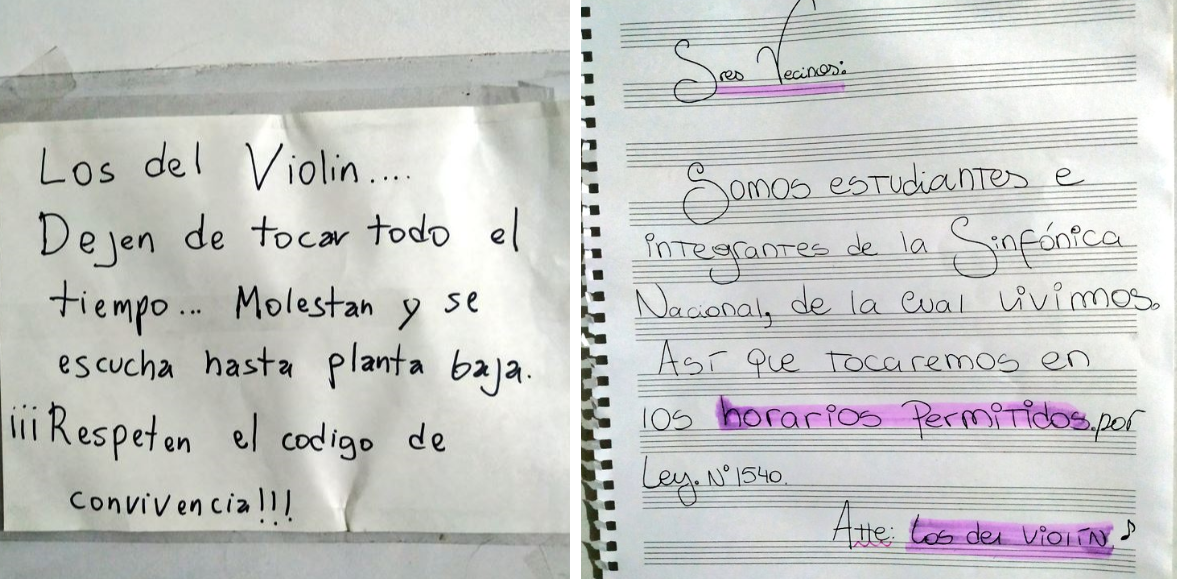 Los del Violin....
Dejen de tocar todo el
tiempo... Molestan y se
escucha hasta planta baja.
¡¡¡Respeten el codigo de
convivencia!!!
Sres Vecinos:
Somos estudiantes e
integrantes de la Sinfónica
Nacional, de la cual vivimos.
Así que tocaremos en
los horarios permitidos.por
Ley. N°1540.
Atte: Los del violín ♪